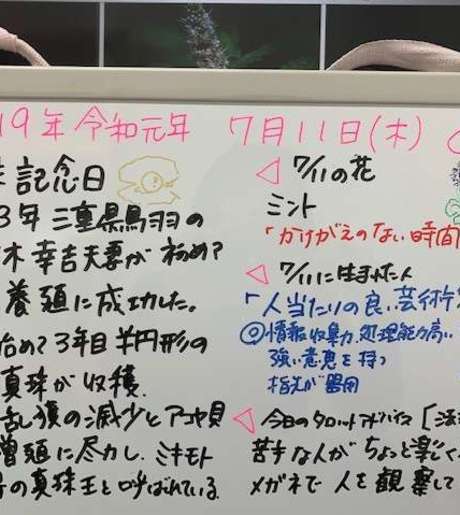 19年 令和元年 7月11日(木)
記念日
3年 三重県鳥羽の
木 幸吉夫妻が 初めて
養殖に成功した。
始めて3年目 半円形の
真珠が収穫.
の減少とアコヤ貝
増殖に尽力し. ミキモト
の真珠王と呼ばれている.
◁ 7/11の花
ミント
「かけがえのない時間
◁ 7/11に生まれた人
「人当たりの良い芸術
◎情報収集力、処理能力高い
強い意志を持つ
指先が器用
◁ 今日のタロットアドバイス [
苦手な人がちょっと楽に
メガネで 人を観察して